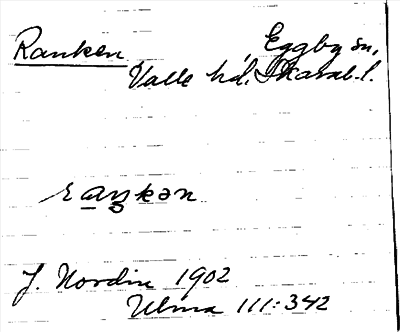 Ranken Eggby sn,
Valle hd. Skarab. l.
raŋkən
J. Nordin 1902
Ulma 111:342